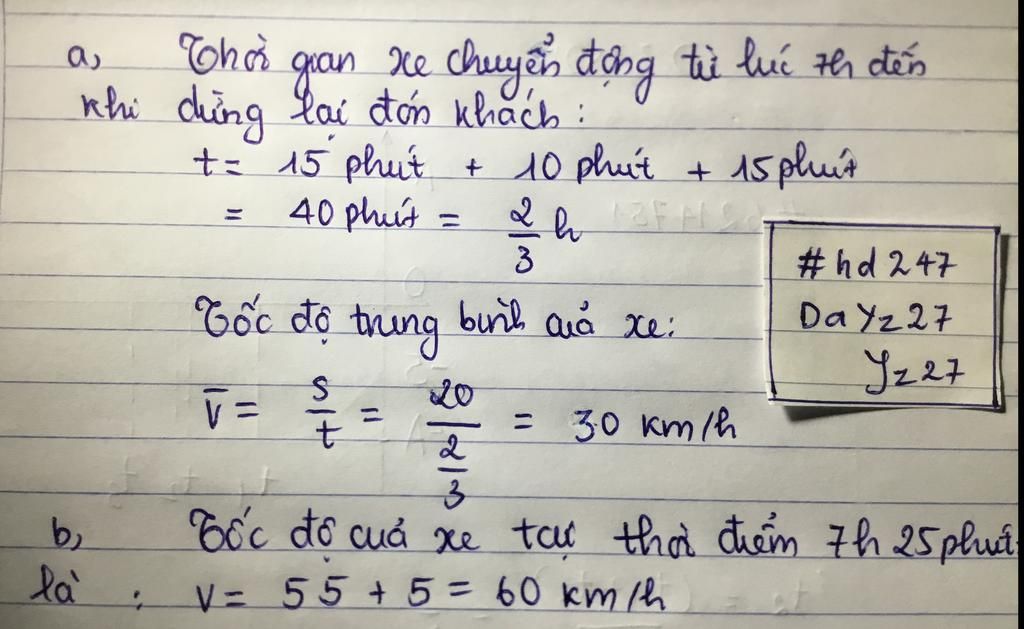 a, Thời gian xe chuyển động từ lúc 7h đến
khi dừng lại đón khách:
t = 15 phút + 10 phút + 15 phút
= 40 phút = 2/3 h
#hd247
DaYz27
Yz27
Tốc độ trung bình của xe:
v̄ = s/t = 20/(2/3) = 30 km/h
b, Tốc độ của xe tại thời điểm 7h 25 phút
là : v = 55 + 5 = 60 km/h